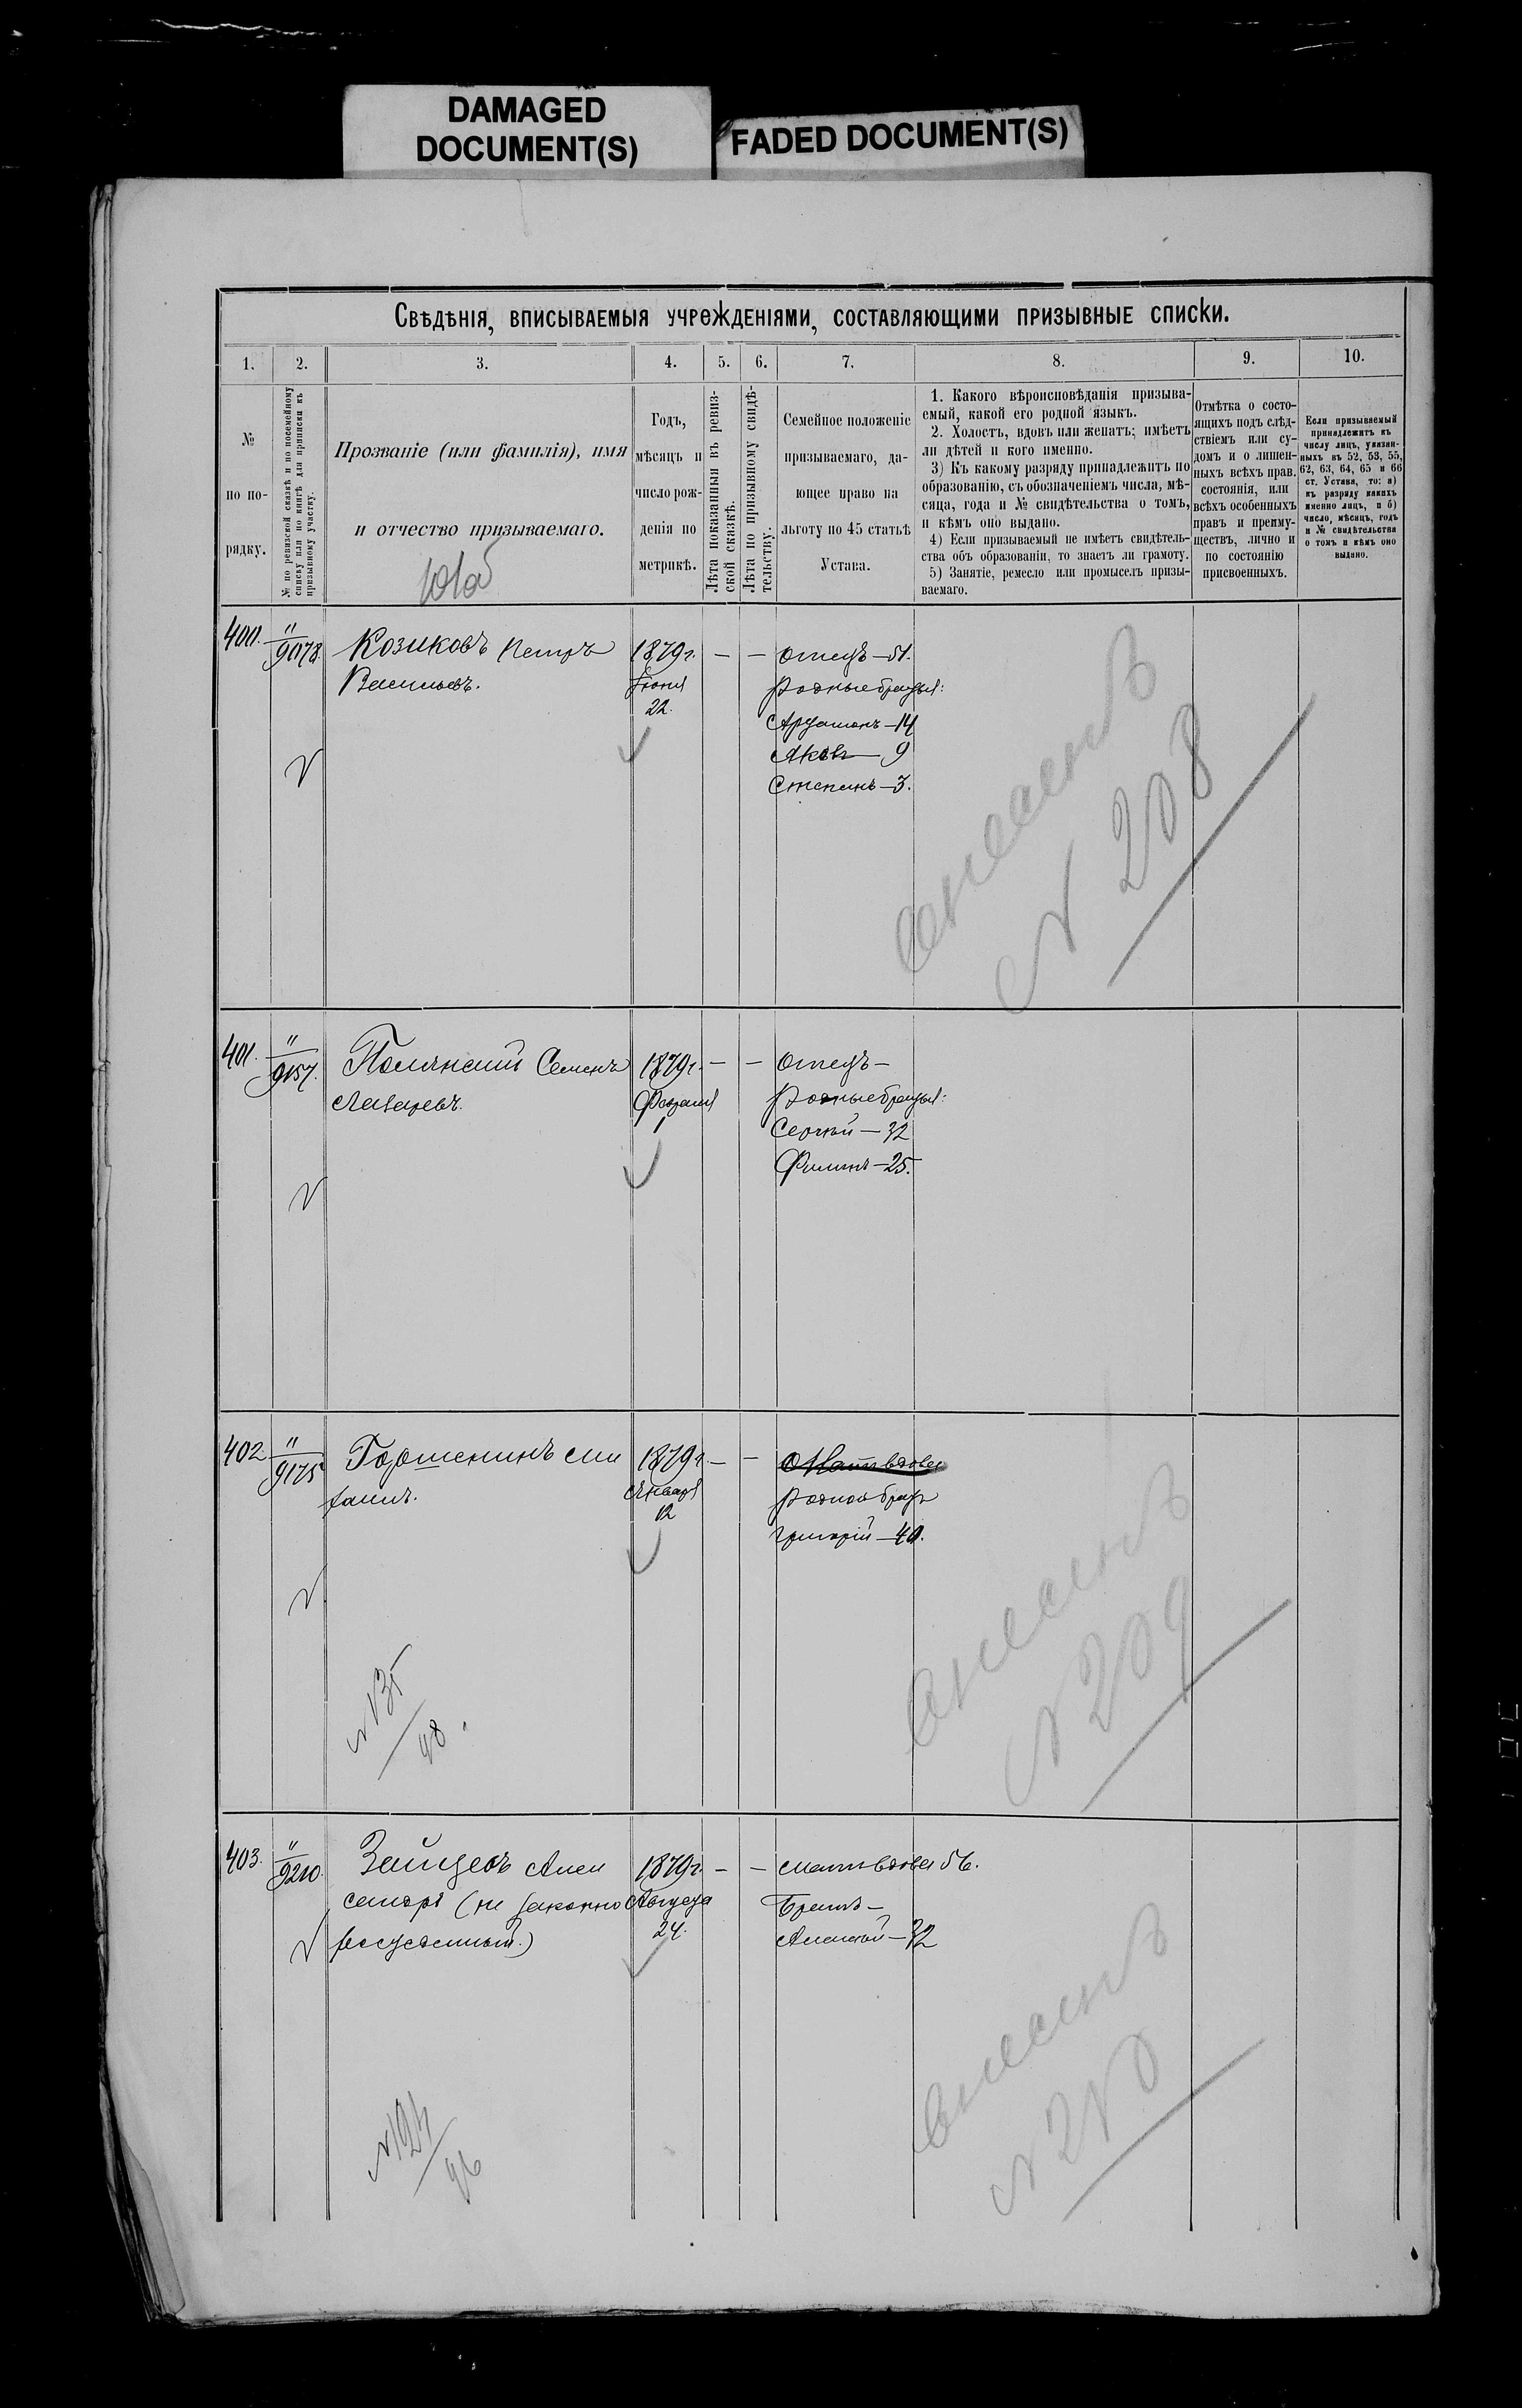 DAMAGED
DOCUMENT(S)
FADED DOCUMENT(S)
Свѣдѣнія, вписываемыя учрежденіями, составляющими призывные списки.
1.
2.
3.
4.
5.
6.
7.
8.
9.
10.
№
по по-
рядку.
№ по ревизской сказкѣ и по посемейному
списку или по книгѣ для приписки къ
призывному участку.
Прозваніе (или фамилія), имя
и отчество призываемаго.
Годъ,
мѣсяцъ и
число рож-
денія по
метрикѣ.
Лѣта показанныя въ ревиз-
ской сказкѣ.
Лѣта по призывному свидѣ-
тельству.
Семейное положеніе
призываемаго, да-
ющее право на
льготу по 45 статьѣ
Устава.
1. Какого вѣроисповѣданія призыва-
емый, какой его родной языкъ.
2. Холостъ, вдовъ или женатъ; имѣетъ
ли дѣтей и кого именно.
3) Къ какому разряду принадлежитъ по
образованію, съ обозначеніемъ числа, мѣ-
сяца, года и № свидѣтельства о томъ,
и кѣмъ оно выдано.
4) Если призываемый не имѣетъ свидѣтель-
ства объ образованіи, то знаетъ ли грамоту.
5) Занятіе, ремесло или промыселъ призы-
ваемаго.
Отмѣтка о состо-
ящихъ подъ слѣд-
ствіемъ или су-
домъ и о лишен-
ныхъ всѣхъ прав.
состоянія, или
всѣхъ особенныхъ
правъ и преиму-
ществъ, лично и
по состоянію
присвоенныхъ.
Если призываемый
принадлежитъ къ
числу лицъ, указан-
ныхъ въ 52, 53, 55,
62, 63, 64, 65 и 66
ст. Устава, то: а)
къ разряду какихъ
именно лицъ, и б)
число, мѣсяцъ, годъ
и № свидѣтельства
о томъ и кѣмъ оно
выдано.
400.
"
9078.
Козиковъ Петръ
Васильевъ.
1879 г.
Іюня
22.
—
—
Отецъ — 51.
Родные братья:
Артамонъ — 14
Яковъ — 9
Степанъ — 3.
внесенъ
№ 208
401.
"
9157.
Полянскій Семенъ
Лазаревъ.
1879 г.
Февраля
1
—
—
Отецъ —
Родные братья:
Сергѣй — 32
Филипъ — 25.
402.
"
9175
Горшенинъ
1879 г.
Января
12
—
—
Мать вдова
Родной братъ
Григорій — 40.
№ 135
48.
внесенъ
№ 209
403.
"
9210.
Зайцевъ Алек
сандръ (не законно
рожденный.)
1879 г.
Августа
24.
—
—
Мать вдова 56.
Братъ —
Алексѣй — 32
№ 124
46
внесенъ
№ 210